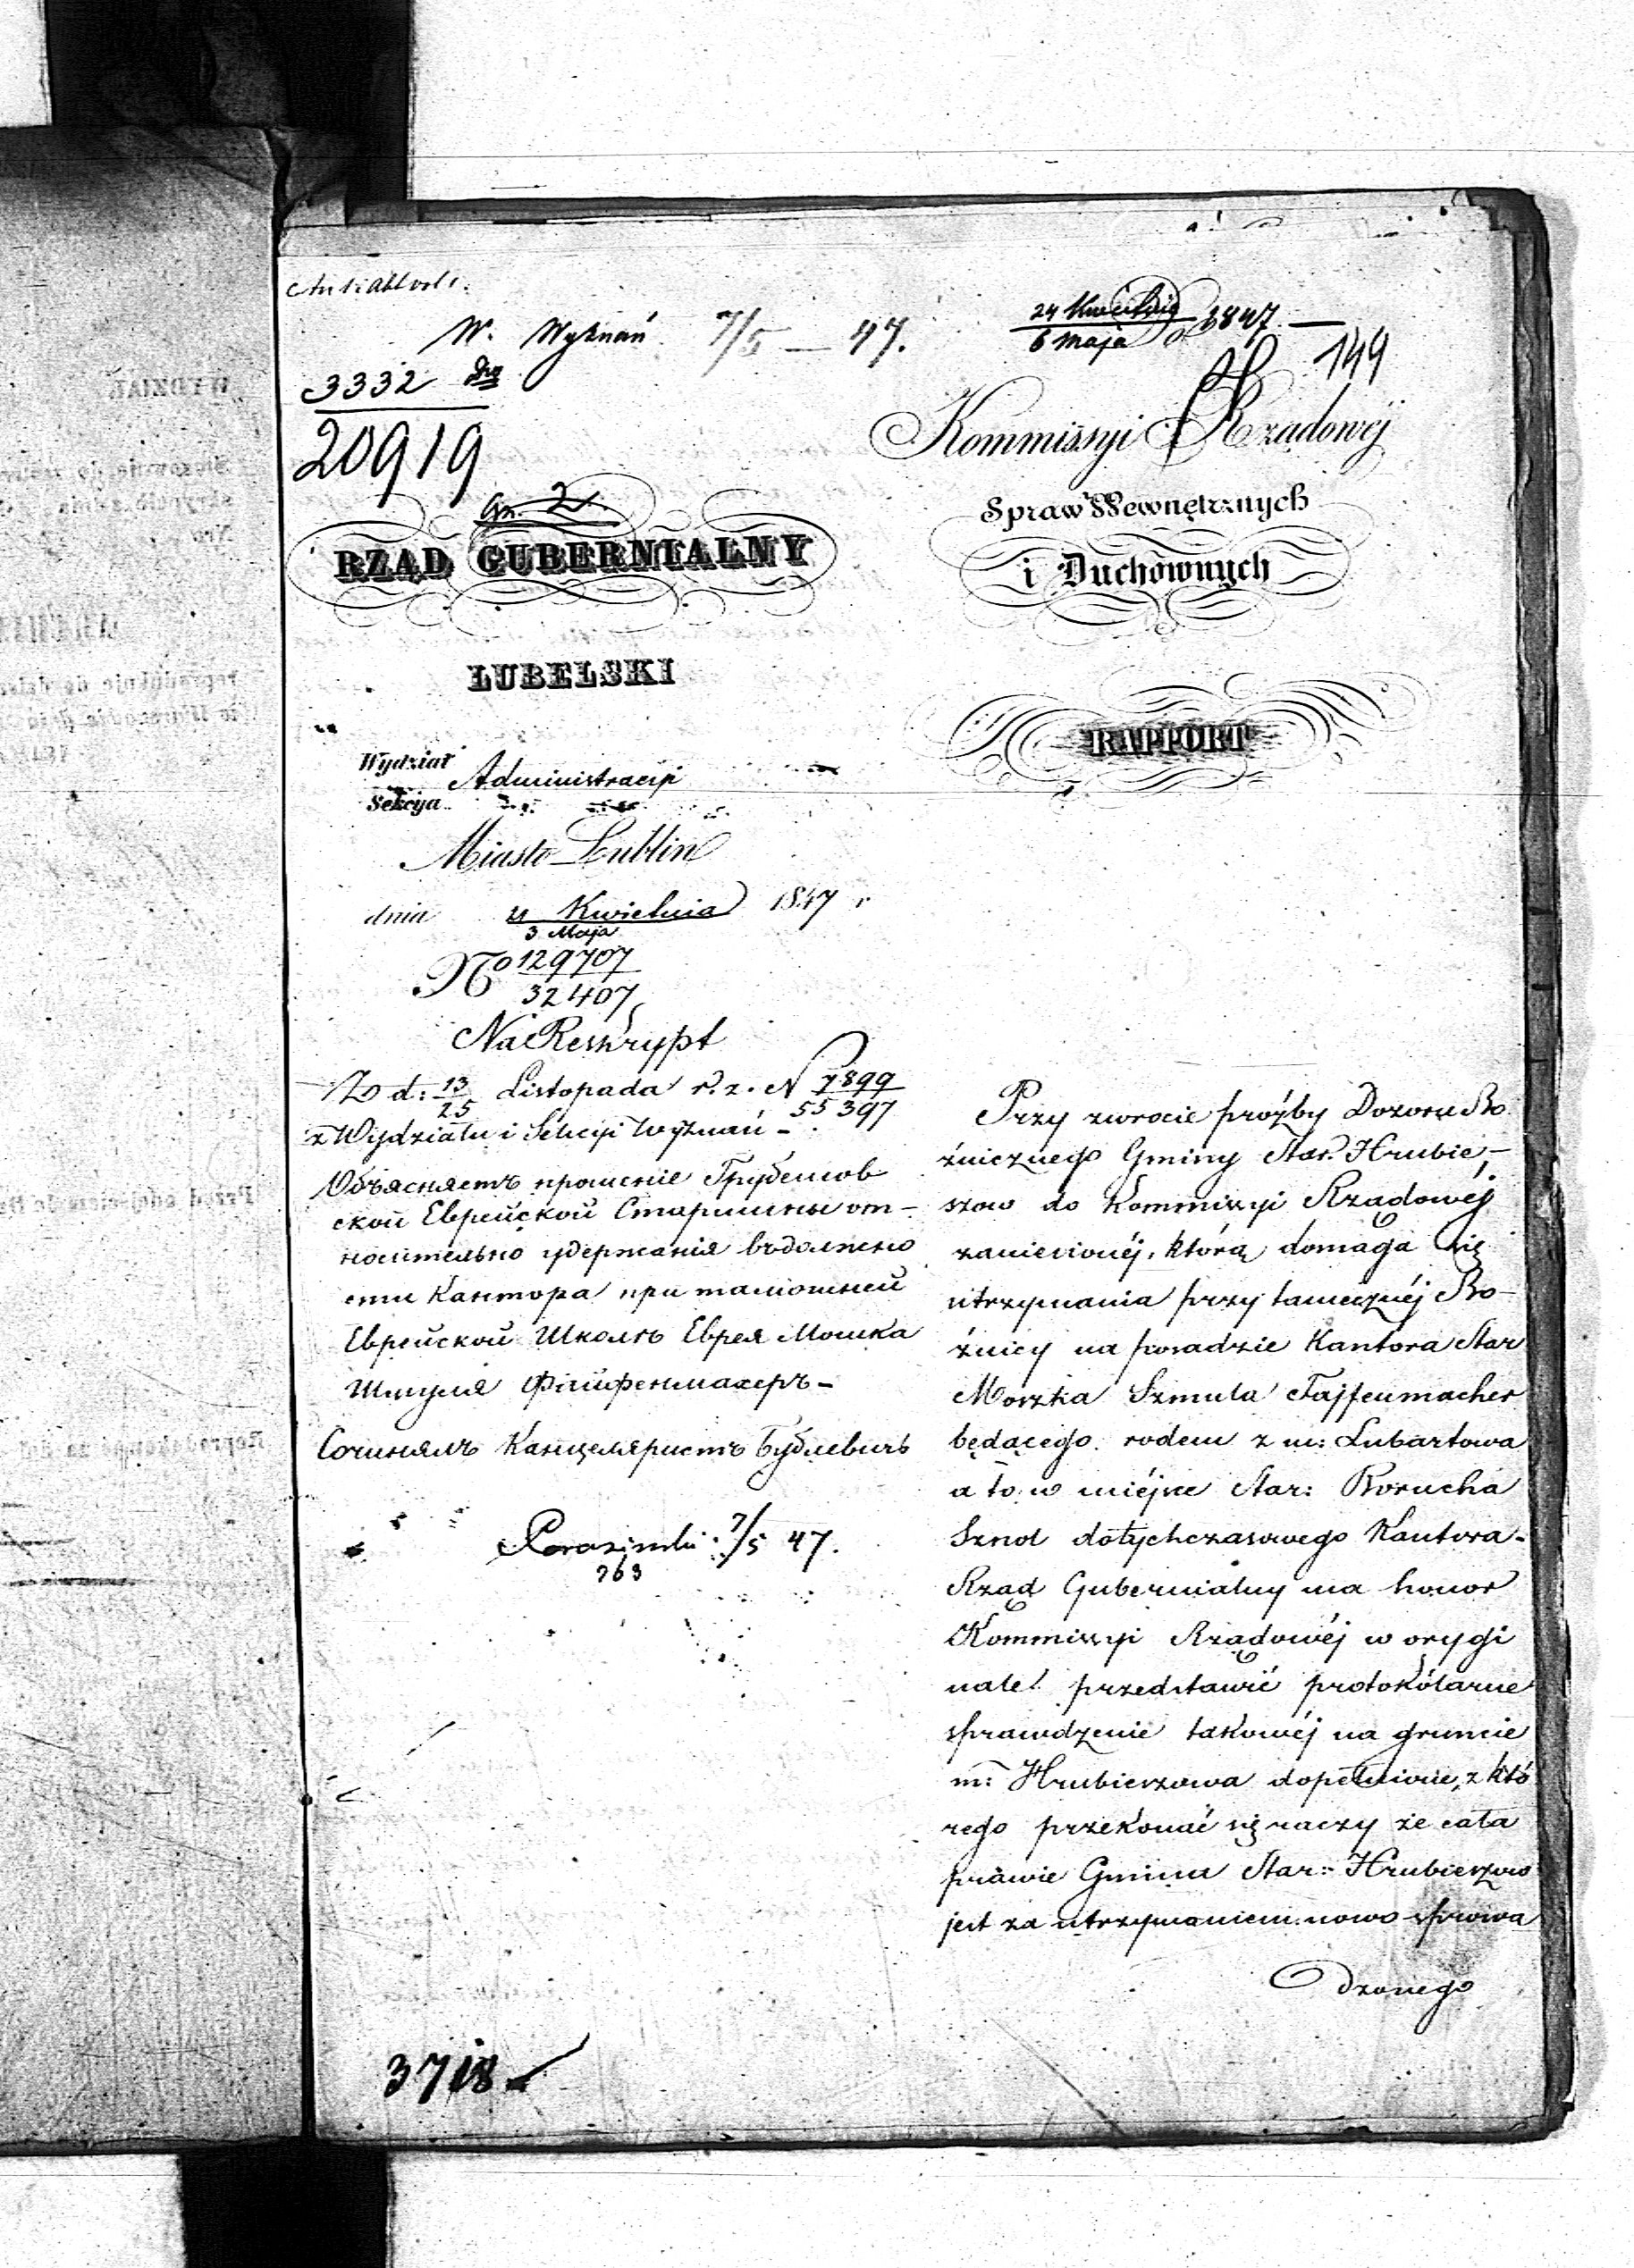 W. Wyznań 7/5 — 47.
24 Kwietnia 1847. —
6 Maja
149
3332
20919
Kommissyi Rządowéj
Gr. 2.
Spraw Wewnętrznych
i Duchownych
RZĄD GUBERNIALNY
LUBELSKI
RAPPORT
Wydział Administracyi
Sekcya
Miasto Lublin
dnia 21 Kwietnia 1847 r.
3 Maja
No 129707
32407
Na Reskrypt
Z d: 13 Listopada r. z. N 7899
25 55397
z Wydziału i Sekcyi Wyznań -
Объясняетъ прошеніе Грубешов
ской Еврейской Старшины от-
носительно удержанія въ должно
сти Кантора при тамошней
Еврейской Школѣ Еврея Мошка
Шмуля Файфенмахеръ -
Сочинялъ Канцеляристъ Бублевичъ
7/5 47.
763
Przy zwrocie proźby Dozoru Bo
źniczego Gminy Star. Hrubie-
szow do Kommissyi Rządowéj
zaniesionéj, którą domaga się
utrzymania przy tamecznéj Bo-
źnicy na posadzie Kantora Star
Moszka Szmula Fajfenmacher
będącego rodem z m: Lubartowa
a to w miéjsce Star: Borucha
Sznol dotychczasowego Kantora -
Rząd Gubernialny ma honor
Kommissyi Rządowéj w orygi
nale przedstawić protokólarne
sprawdzenie takowéj na gruncie
m: Hrubieszowa dopełnione, z któ
rego przekonać się raczy że cała
prawie Gmina Star: Hrubieszow
jest za utrzymaniem nowo sprowa
dzonego
3718